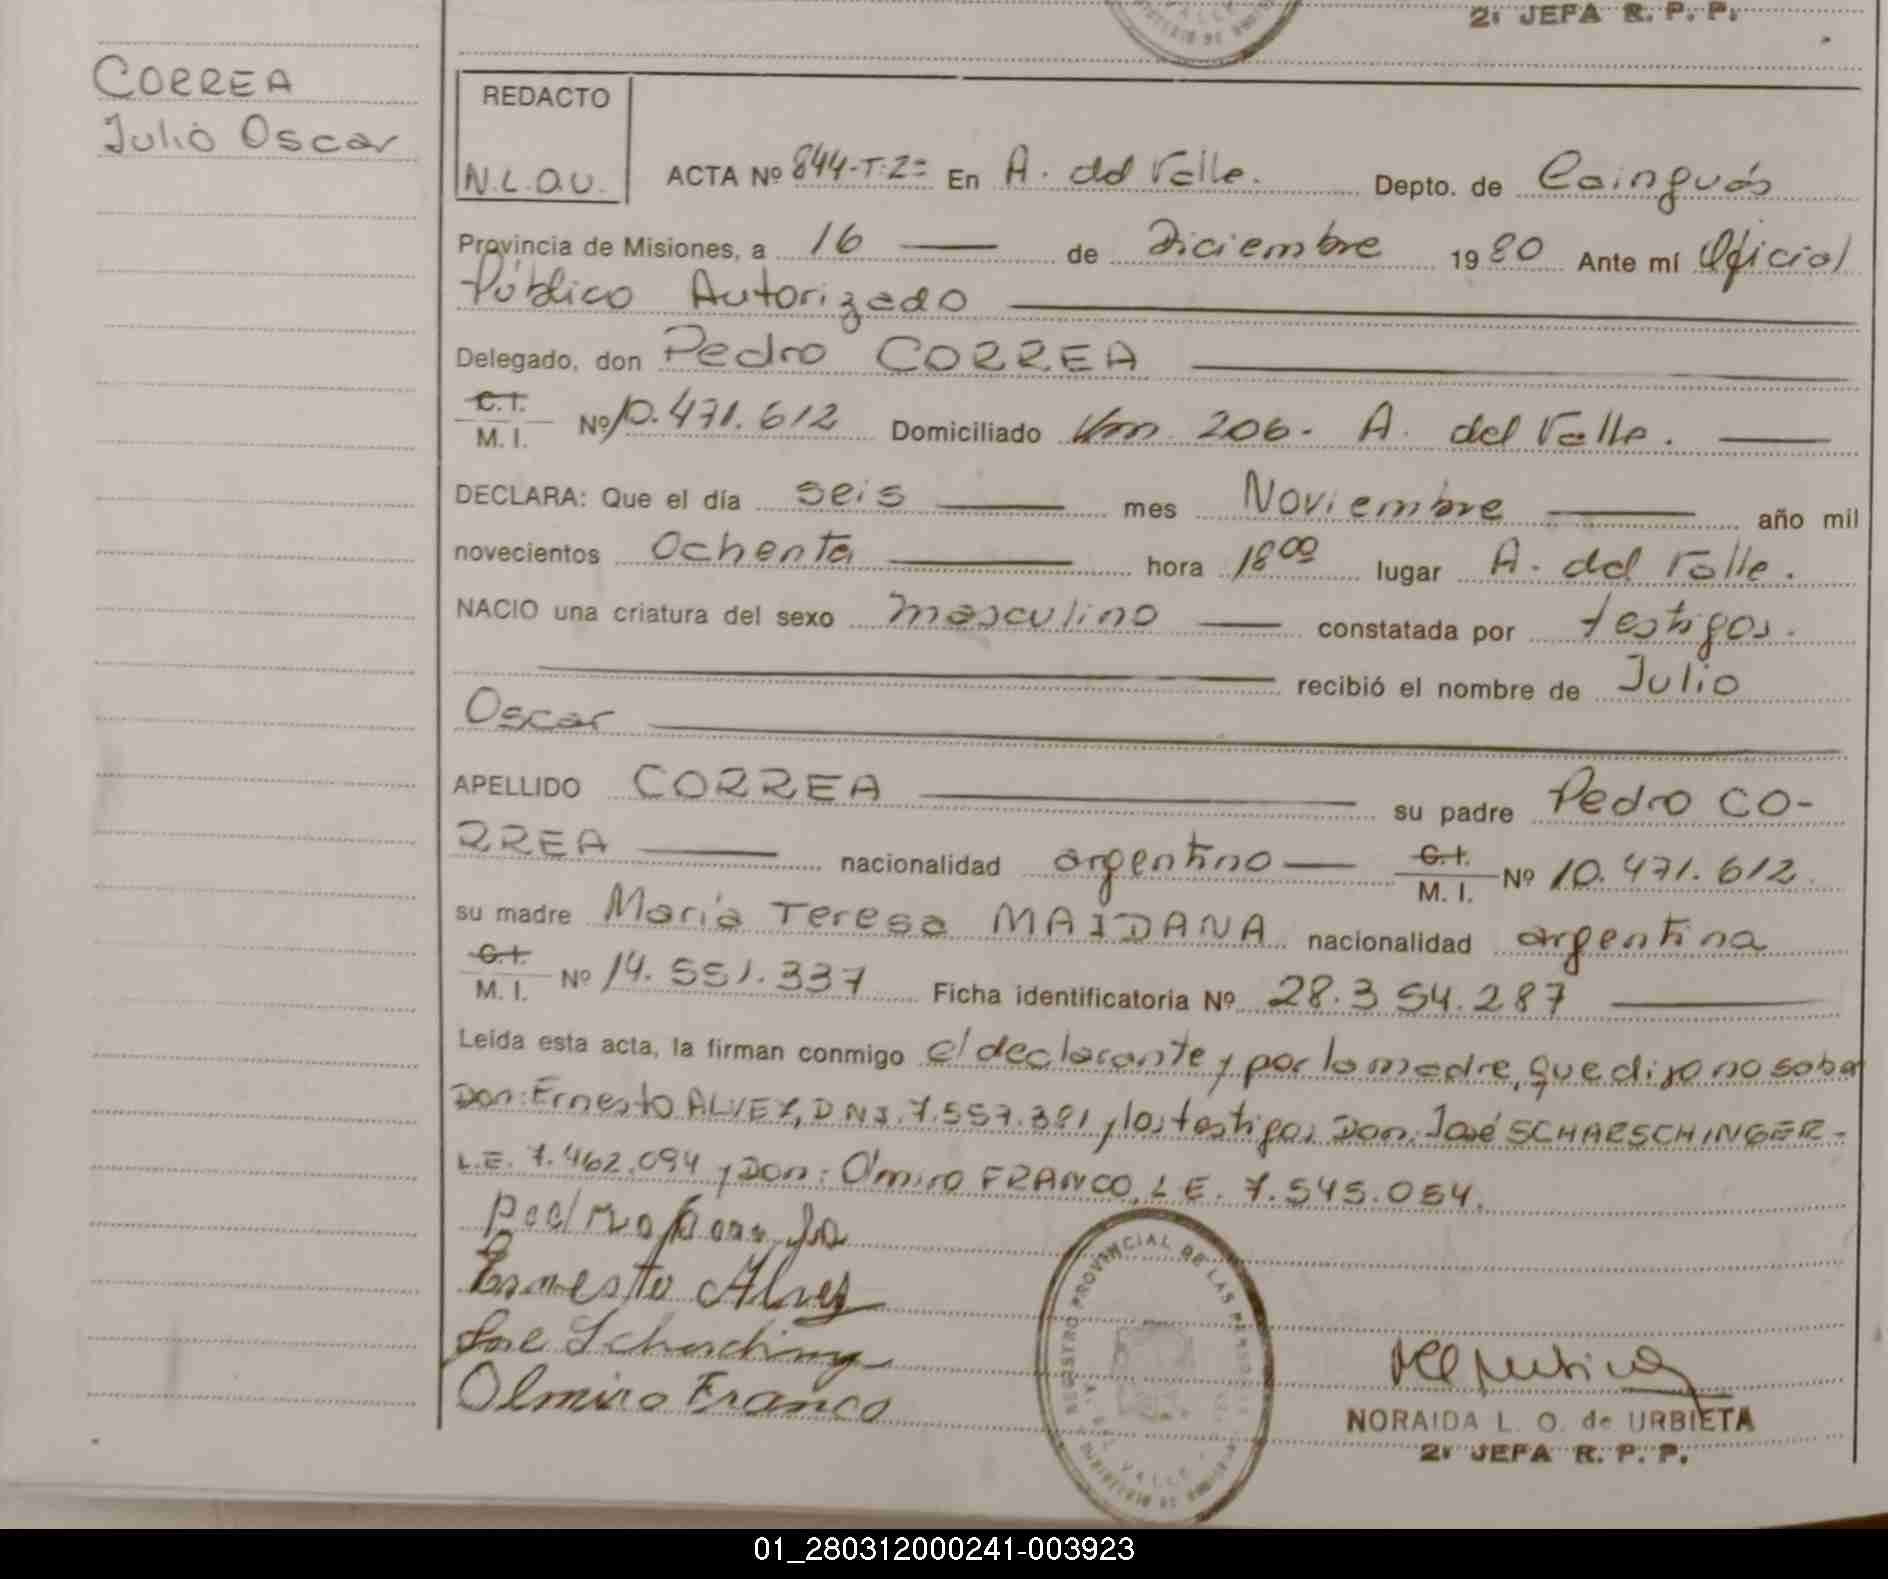 2ª JEFA R. P. P.
CORREA
Julio Oscar
REDACTO
N.L.O.U.
ACTA Nº 844-T:2= En A. del Valle. Depto. de Cainguás
Provincia de Misiones, a 16 de Diciembre 1980 Ante mí Oficial
Público Autorizado
Delegado, don Pedro CORREA
C.I.
M. I. Nº 10.471.612 Domiciliado Km 206- A. del Valle.
DECLARA: Que el día seis mes Noviembre año mil
novecientos Ochenta hora 18 00 lugar A. del Valle.
NACIO una criatura del sexo masculino constatada por testigos.
recibió el nombre de Julio
Oscar
APELLIDO CORREA su padre Pedro CO-
RREA nacionalidad argentino C.I. M. I. Nº 10.471.612
su madre María Teresa MAIDANA nacionalidad argentina
C.I.
M. I. Nº 14.551.337 Ficha identificatoria Nº 28.354.287
Leída esta acta, la firman conmigo el declarante y por la madre, que dijo no saber
Don: Ernesto ALVEZ, DNI. 7.557.381 y los testigos Don: José SCHARSCHINGER-
L.E. 7.462.094 y Don: Olmiro FRANCO, L E. 7.545.054.
Ernesto Alvez
Olmiro Franco
REGISTRO PROVINCIAL DE LAS PERSONAS
A. DEL VALLE
NORAIDA L. O. de URBIETA
2ª JEFA R. P. P.
01_280312000241-003923